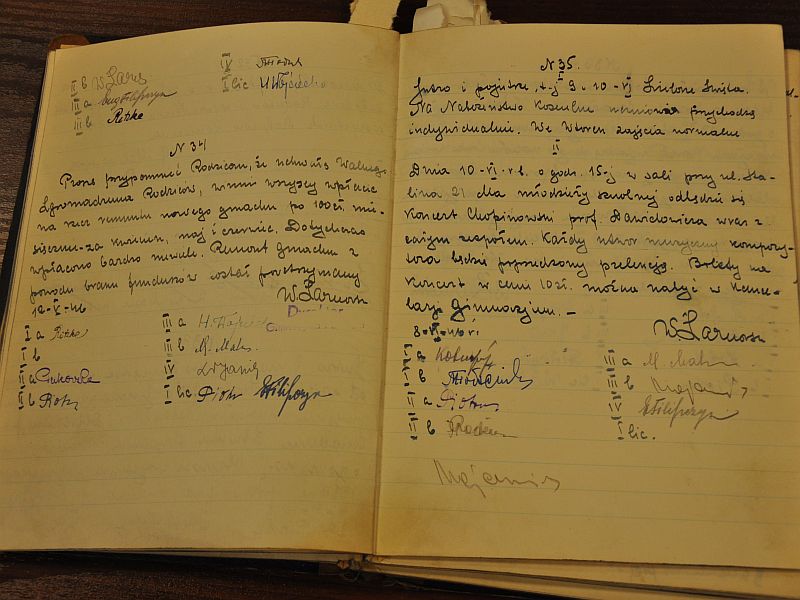 II b W. Zaruś
III a
III b Retke
IV
I lic. H. Wójcicka
N 34
Proszę przypomnieć Rodzicom, że uchwałą Walnego
Zgromadzenia Rodziców, winni wszyscy wpłacić
na rzecz remontu nowego gmachu po 100 zł. mie-
sięcznie - za kwiecień, maj i czerwiec. Dotychczas
wpłacono bardzo niewiele. Remont gmachu z
powodu braku funduszów został powstrzymany
12-V-46
I a Retke
I b
II a
II b
III a H. Wójcicka
III b M. Mak.
IV
I lic. Piotr
N 35.
I
Jutro i pojutrze, t.j 9 i 10-VI Zielone Święta.
Na Nabożeństwo Kościelne uczniowie przychodzą
indywidualnie. We Wtorek zajęcia normalne
II
Dnia 10-VI-r.b. o godz. 15-j w sali przy ul. Sta-
lina 21 dla młodzieży szkolnej odbędzie się
Koncert Chopinowski prof. Dawidowicza wraz z
całym zespołem. Każdy utwór muzyczny kompozy-
tora będzie poprzedzony prelekcją. Bilety na
Koncert w cenie 10 zł. można nabyć w Kance-
larji Gimnazjum. -
8-VI-46 r.
I a
I b
II a
II b
III a M. Mak
III b
IV
I lic.